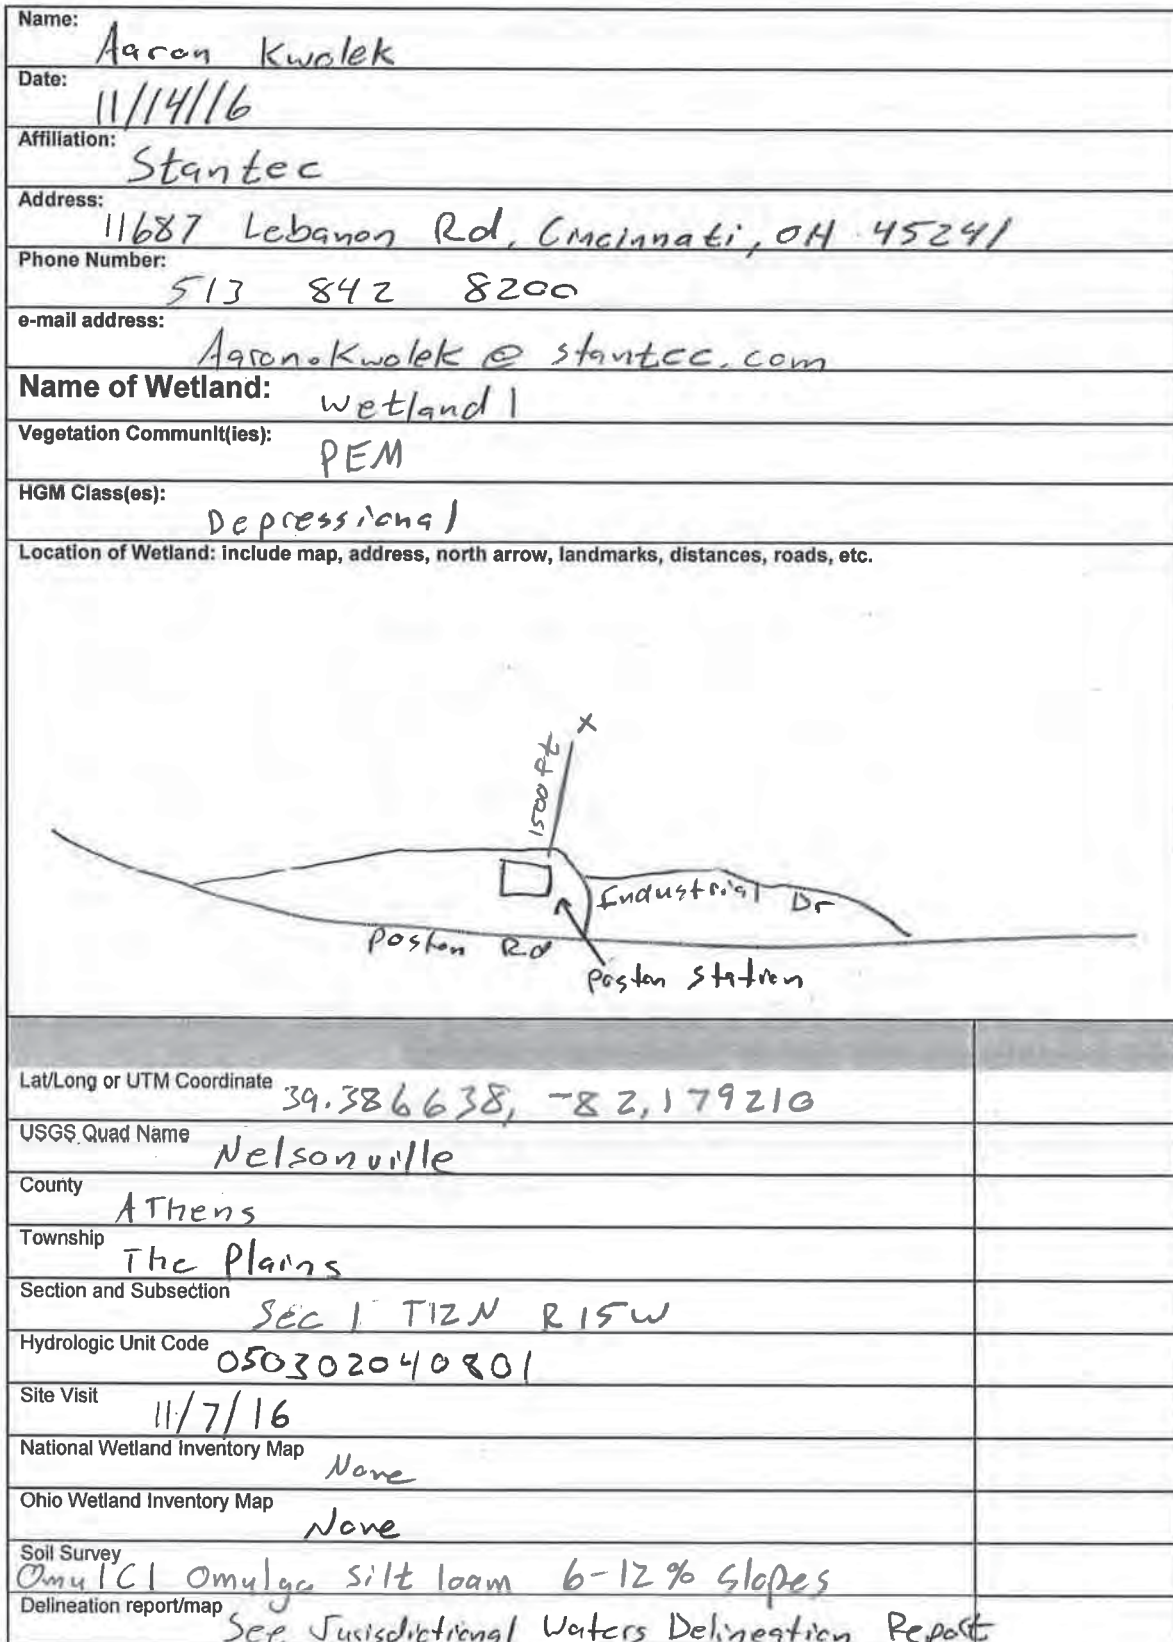 Name: Aaron Kwolek
Date: 11/14/16
Affiliation: Stantec
Address: 11687 Lebanon Rd, Cincinnati, OH 45241
Phone Number: 513 842 8200
e-mail address: Aaron.Kwolek @ stantec.com
Name of Wetland: Wetland 1
Vegetation Communit(ies): PEM
HGM Class(es): Depressional
Location of Wetland: include map, address, north arrow, landmarks, distances, roads, etc.
X
1500 ft
Industrial Dr
Poston Rd
Poston Station
Lat/Long or UTM Coordinate 39.386638, -82.179210
USGS Quad Name Nelsonville
County Athens
Township The Plains
Section and Subsection Sec 1 T12N R15W
Hydrologic Unit Code 050302040801
Site Visit 11/7/16
National Wetland Inventory Map None
Ohio Wetland Inventory Map None
Soil Survey Omu1C1 Omulga silt loam 6-12% slopes
Delineation report/map See Jurisdictional Waters Delineation Report